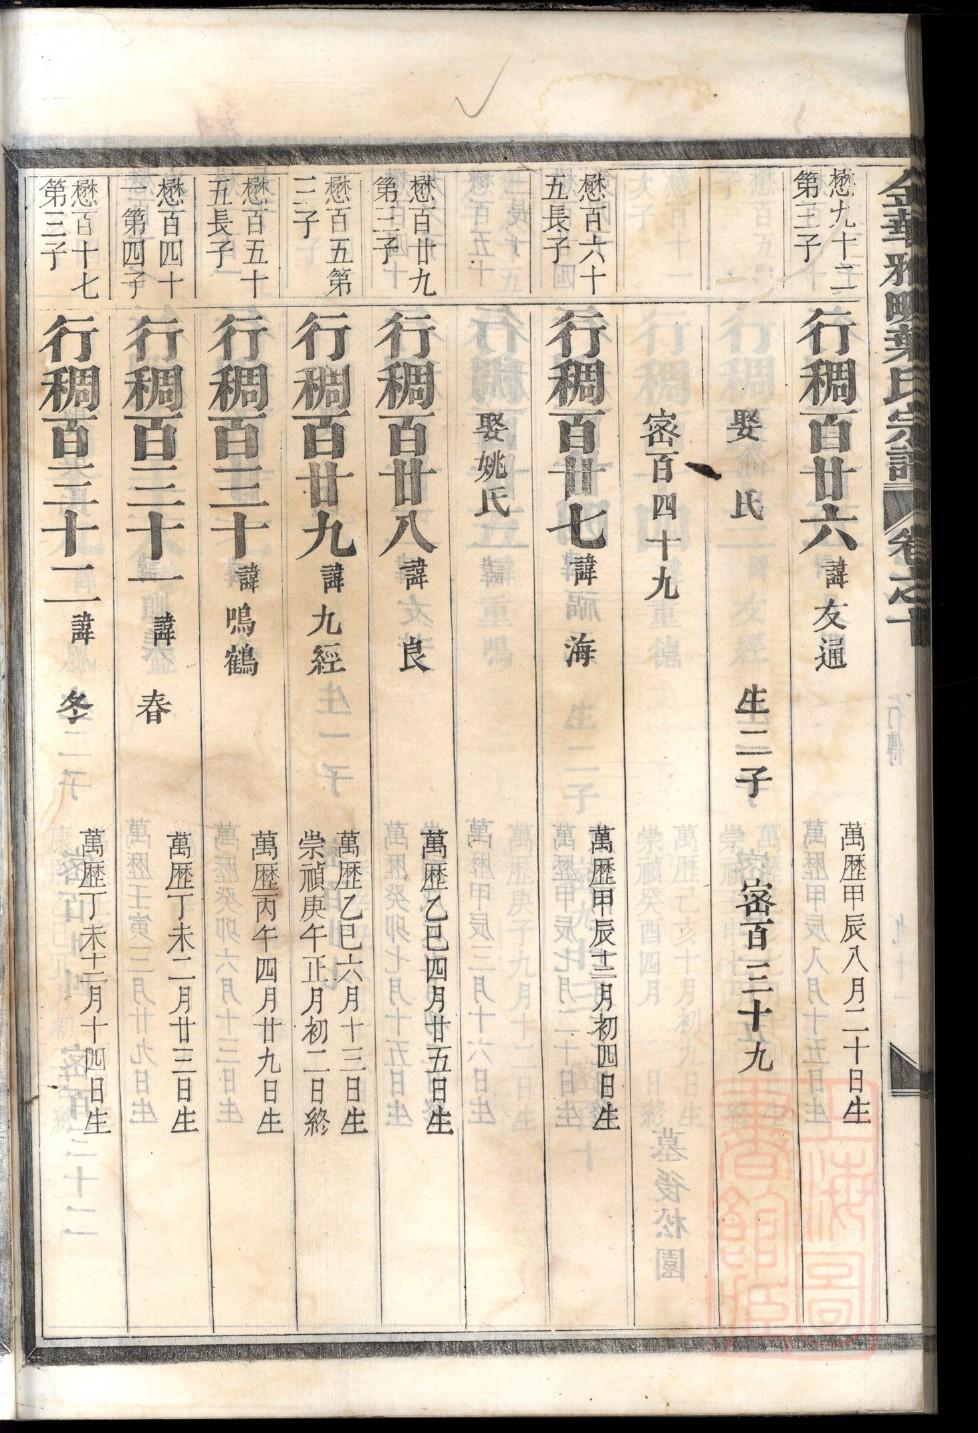 金華雅畈葉氏宗譜 卷之十
懋九十二
第三子
行稠百廿六 諱友通 萬歷甲辰八月二十日生
娶 氏 生二子 密百三十九
密百四十九
懋百六十
五長子
行稠百廿七 諱海 萬歷甲辰十二月初四日生
娶姚氏
懋百廿九
第三子
行稠百廿八 諱良 萬歷乙巳四月廿五日生
懋百五第
二子
行稠百廿九 諱九經 萬歷乙巳六月十三日生
崇禎庚午正月初二日終
懋百五十
五長子
行稠百三十 諱鳴鶴 萬歷丙午四月廿九日生
懋百四十
第四子
行稠百三十一 諱春 萬歷丁未二月廿三日生
懋百十七
第三子
行稠百三十二 諱冬 萬歷丁未十二月十四日生
上海圖
書館藏